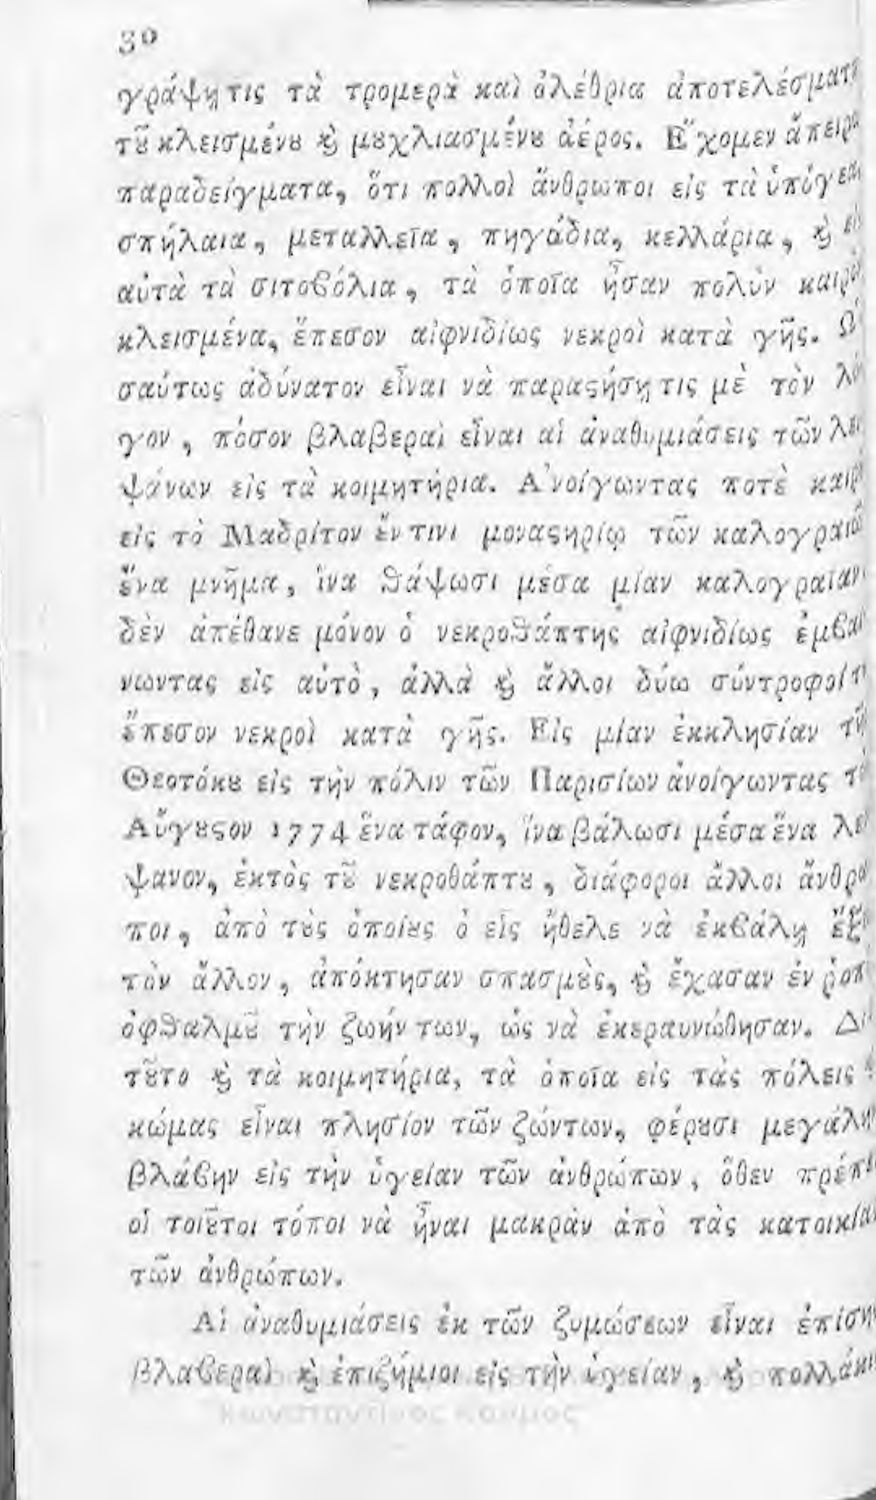 30
γράψῃ τις τὰ τρομερὰ καὶ ὀλέθρια ἀποτελέσματ
τȣ͂ κλεισμένȣ ϗ μȣχλιασμένȣ ἀέρος. Ἔχομεν ἄπειρ
παραδείγματα, ὅτι πολλοὶ ἄνθρωποι εἰς τὰ ὑπόγεα
σπήλαια, μεταλλεῖα, πηγάδια, κελλάρια, ϗ εἰ
αὐτὰ τὰ σιτοϐόλια, τὰ ὁποῖα ἦσαν πολὺν καιρὸ
κλεισμένα, ἔπεσον αἰφνιδίως νεκροὶ κατὰ γῆς. Ὡ
σαύτως ἀδύνατον εἶναι νὰ παραϛήσῃ τις μὲ τὸν λό
γον, πόσον βλαβεραὶ εἶναι αἱ ἀναθυμιάσεις τῶν λει
ψάνων εἰς τὰ κοιμητήρια. Ἀνοίγωντας ποτὲ καιρ
εἰς τὸ Μαδρίτον ἔν τινι μοναϛηρίῳ τῶν καλογραιῶ
ἕνα μνῆμα, ἵνα ϑάψωσι μέσα μίαν καλογραῖαν
δὲν ἀπέθανε μόνον ὁ νεκροϑάπτης αἰφνιδίως ἐμϐαί
νωντας εἰς αὐτὸ, ἀλλὰ ϗ ἄλλοι δύω σύντροφοί τ
ἔπεσον νεκροὶ κατὰ γῆς. Εἰς μίαν ἐκκλησίαν τῆ
Θεοτόκȣ εἰς τὴν πόλιν τῶν Παρισίων ἀνοίγωντας τὸ
Αὔγȣϛον 1774 ἕνα τάφον, ἵνα βάλωσι μέσα ἕνα λεί
ψανον, ἐκτὸς τȣ͂ νεκροθάπτȣ, διάφοροι ἄλλοι ἄνθρω
ποι, ἀπὸ τȣ̀ς ὁποίȣς ὁ εἷς ἤθελε νὰ ἐκϐάλῃ ἔξω
τὸν ἄλλον, ἀπόκτησαν σπασμȣ̀ς, ϗ ἔχασαν ἐν ῥοπ
ὀφϑαλμȣ͂ τὴν ζωήν των, ὡς νὰ ἐκεραυνώθησαν. Δι
τȣ͂το ϗ τὰ κοιμητήρια, τὰ ὁποῖα εἰς τὰς πόλεις ϗ
κώμας εἶναι πλησίον τῶν ζώντων, φέρȣσι μεγάλη
βλάϐην εἰς τὴν ὑγείαν τῶν ἀνθρώπων, ὅθεν πρέπε
οἱ τοιȣ͂τοι τόποι νὰ ἦναι μακρὰν ἀπὸ τὰς κατοικία
τῶν ἀνθρώπων.
Αἱ ἀναθυμιάσεις ἐκ τῶν ζυμώσεων εἶναι ἐπίση
βλαϐεραὶ ϗ ἐπιζήμιοι εἰς τὴν ὑγείαν, ϗ πολλάκι